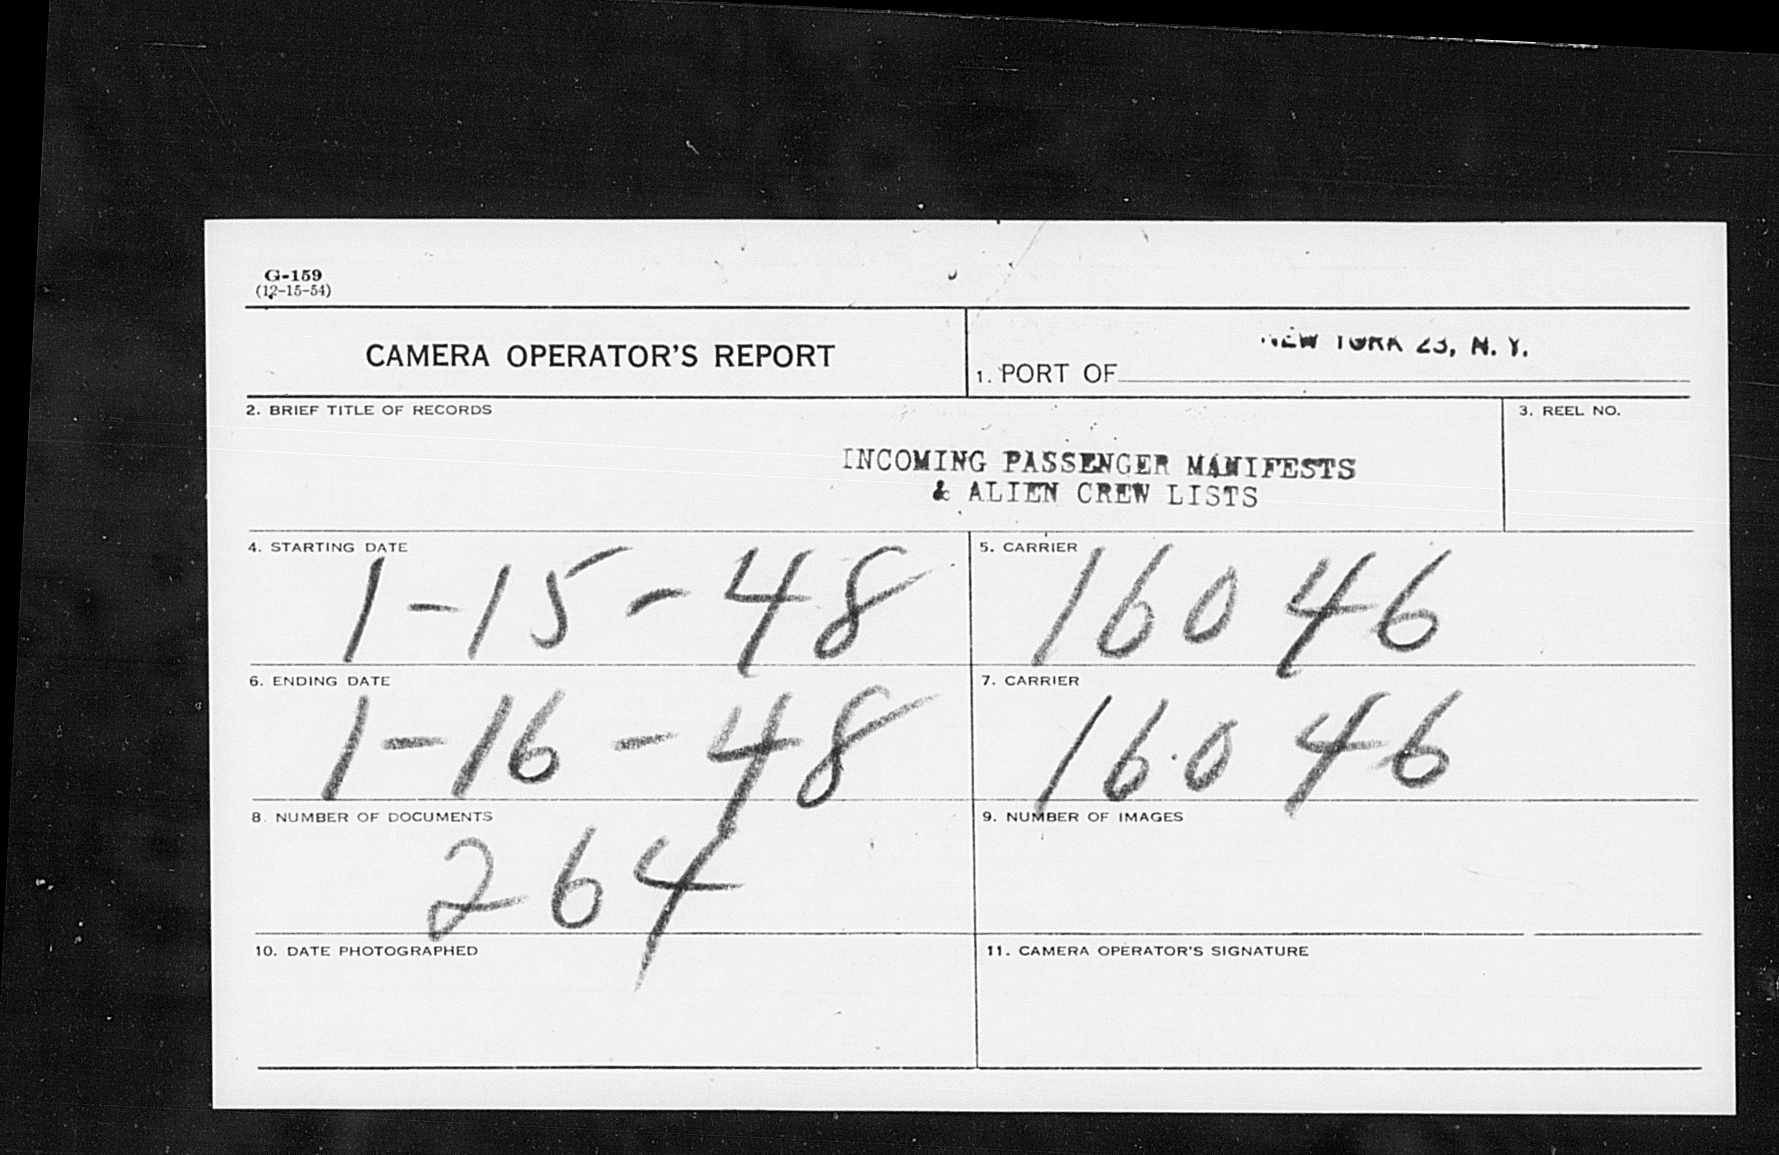 G-159
(12-15-54)
CAMERA OPERATOR'S REPORT
NEW YORK 23, N. Y.
1. PORT OF
2. BRIEF TITLE OF RECORDS
3. REEL NO.
INCOMING PASSENGER MANIFESTS
& ALIEN CREW LISTS
4. STARTING DATE
1-15-48
5. CARRIER
16046
6. ENDING DATE
1-16-48
7. CARRIER
16046
8. NUMBER OF DOCUMENTS
264
9. NUMBER OF IMAGES
10. DATE PHOTOGRAPHED
11. CAMERA OPERATOR'S SIGNATURE